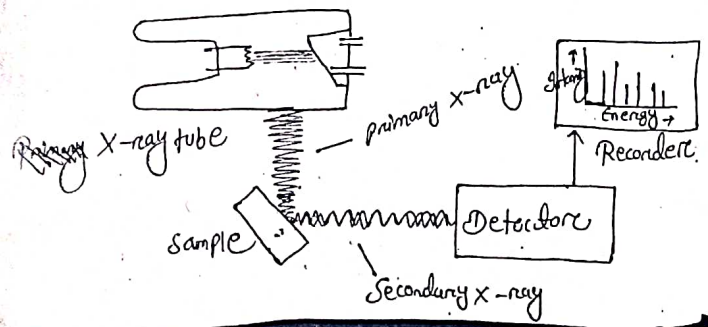 X-ray tube
primary X-ray
Intensity
Energy →
Recorder
Sample
Detector
Secondary X-ray